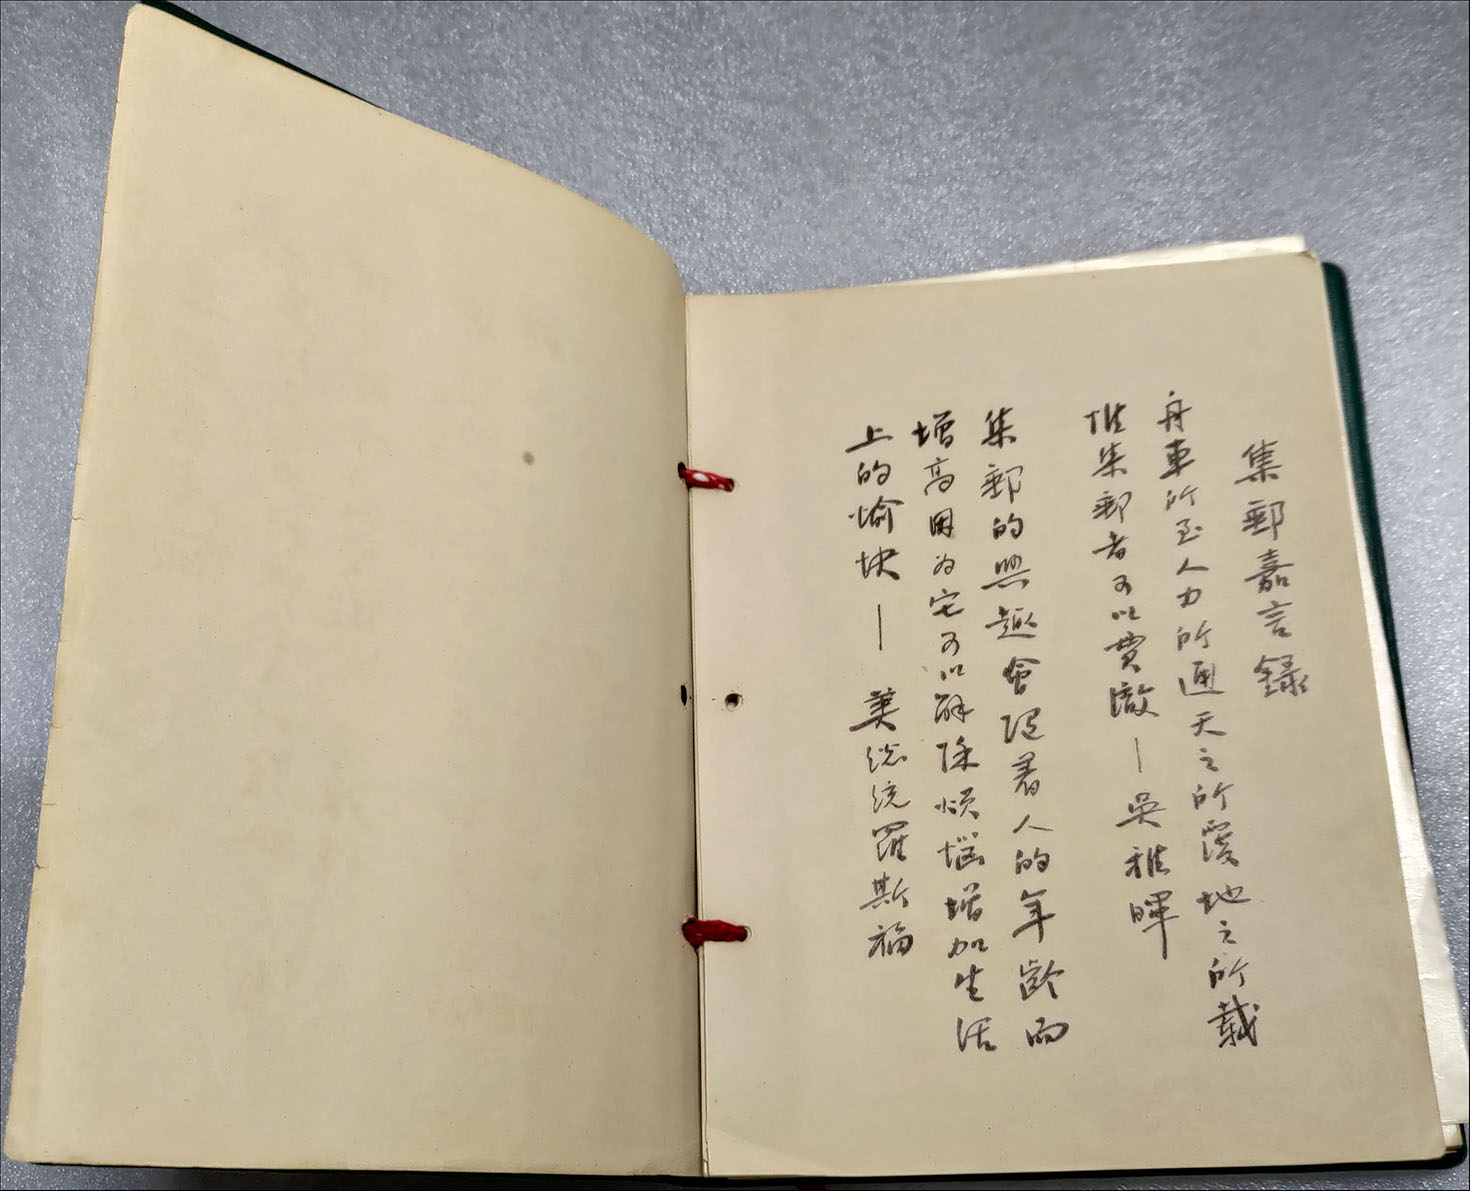 集郵嘉言録
舟車所至人力所通天之所覆地之所載
惟集郵者可以貫澈—吳稚暉
集郵的興趣會随着人的年齡而
增高因为它可以解除煩惱增加生活
上的愉快—美総統羅斯福